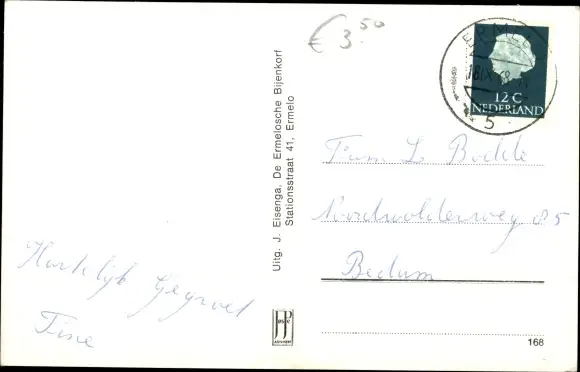 € 3.50
ERMELO
18.IX.68
5
12 C
NEDERLAND
Fam L Bodde
Noordwolderweg 85
Bedum
Hartelijk Gegroet
Tine
Uitg. J. Eisenga, De Ermelosche Bijenkorf
Stationsstraat 41, Ermelo
168